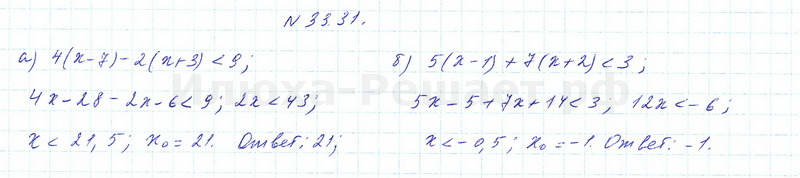 N 33.31.
а) 4(x-7)-2(x+3)<9;
4x-28-2x-6<9; 2x<43;
x<21,5; x₀=21. Ответ: 21;
б) 5(x-1)+7(x+2)<3;
5x-5+7x+14<3; 12x<-6;
x<-0,5; x₀=-1. Ответ: -1.
Илюха-Решает.рф